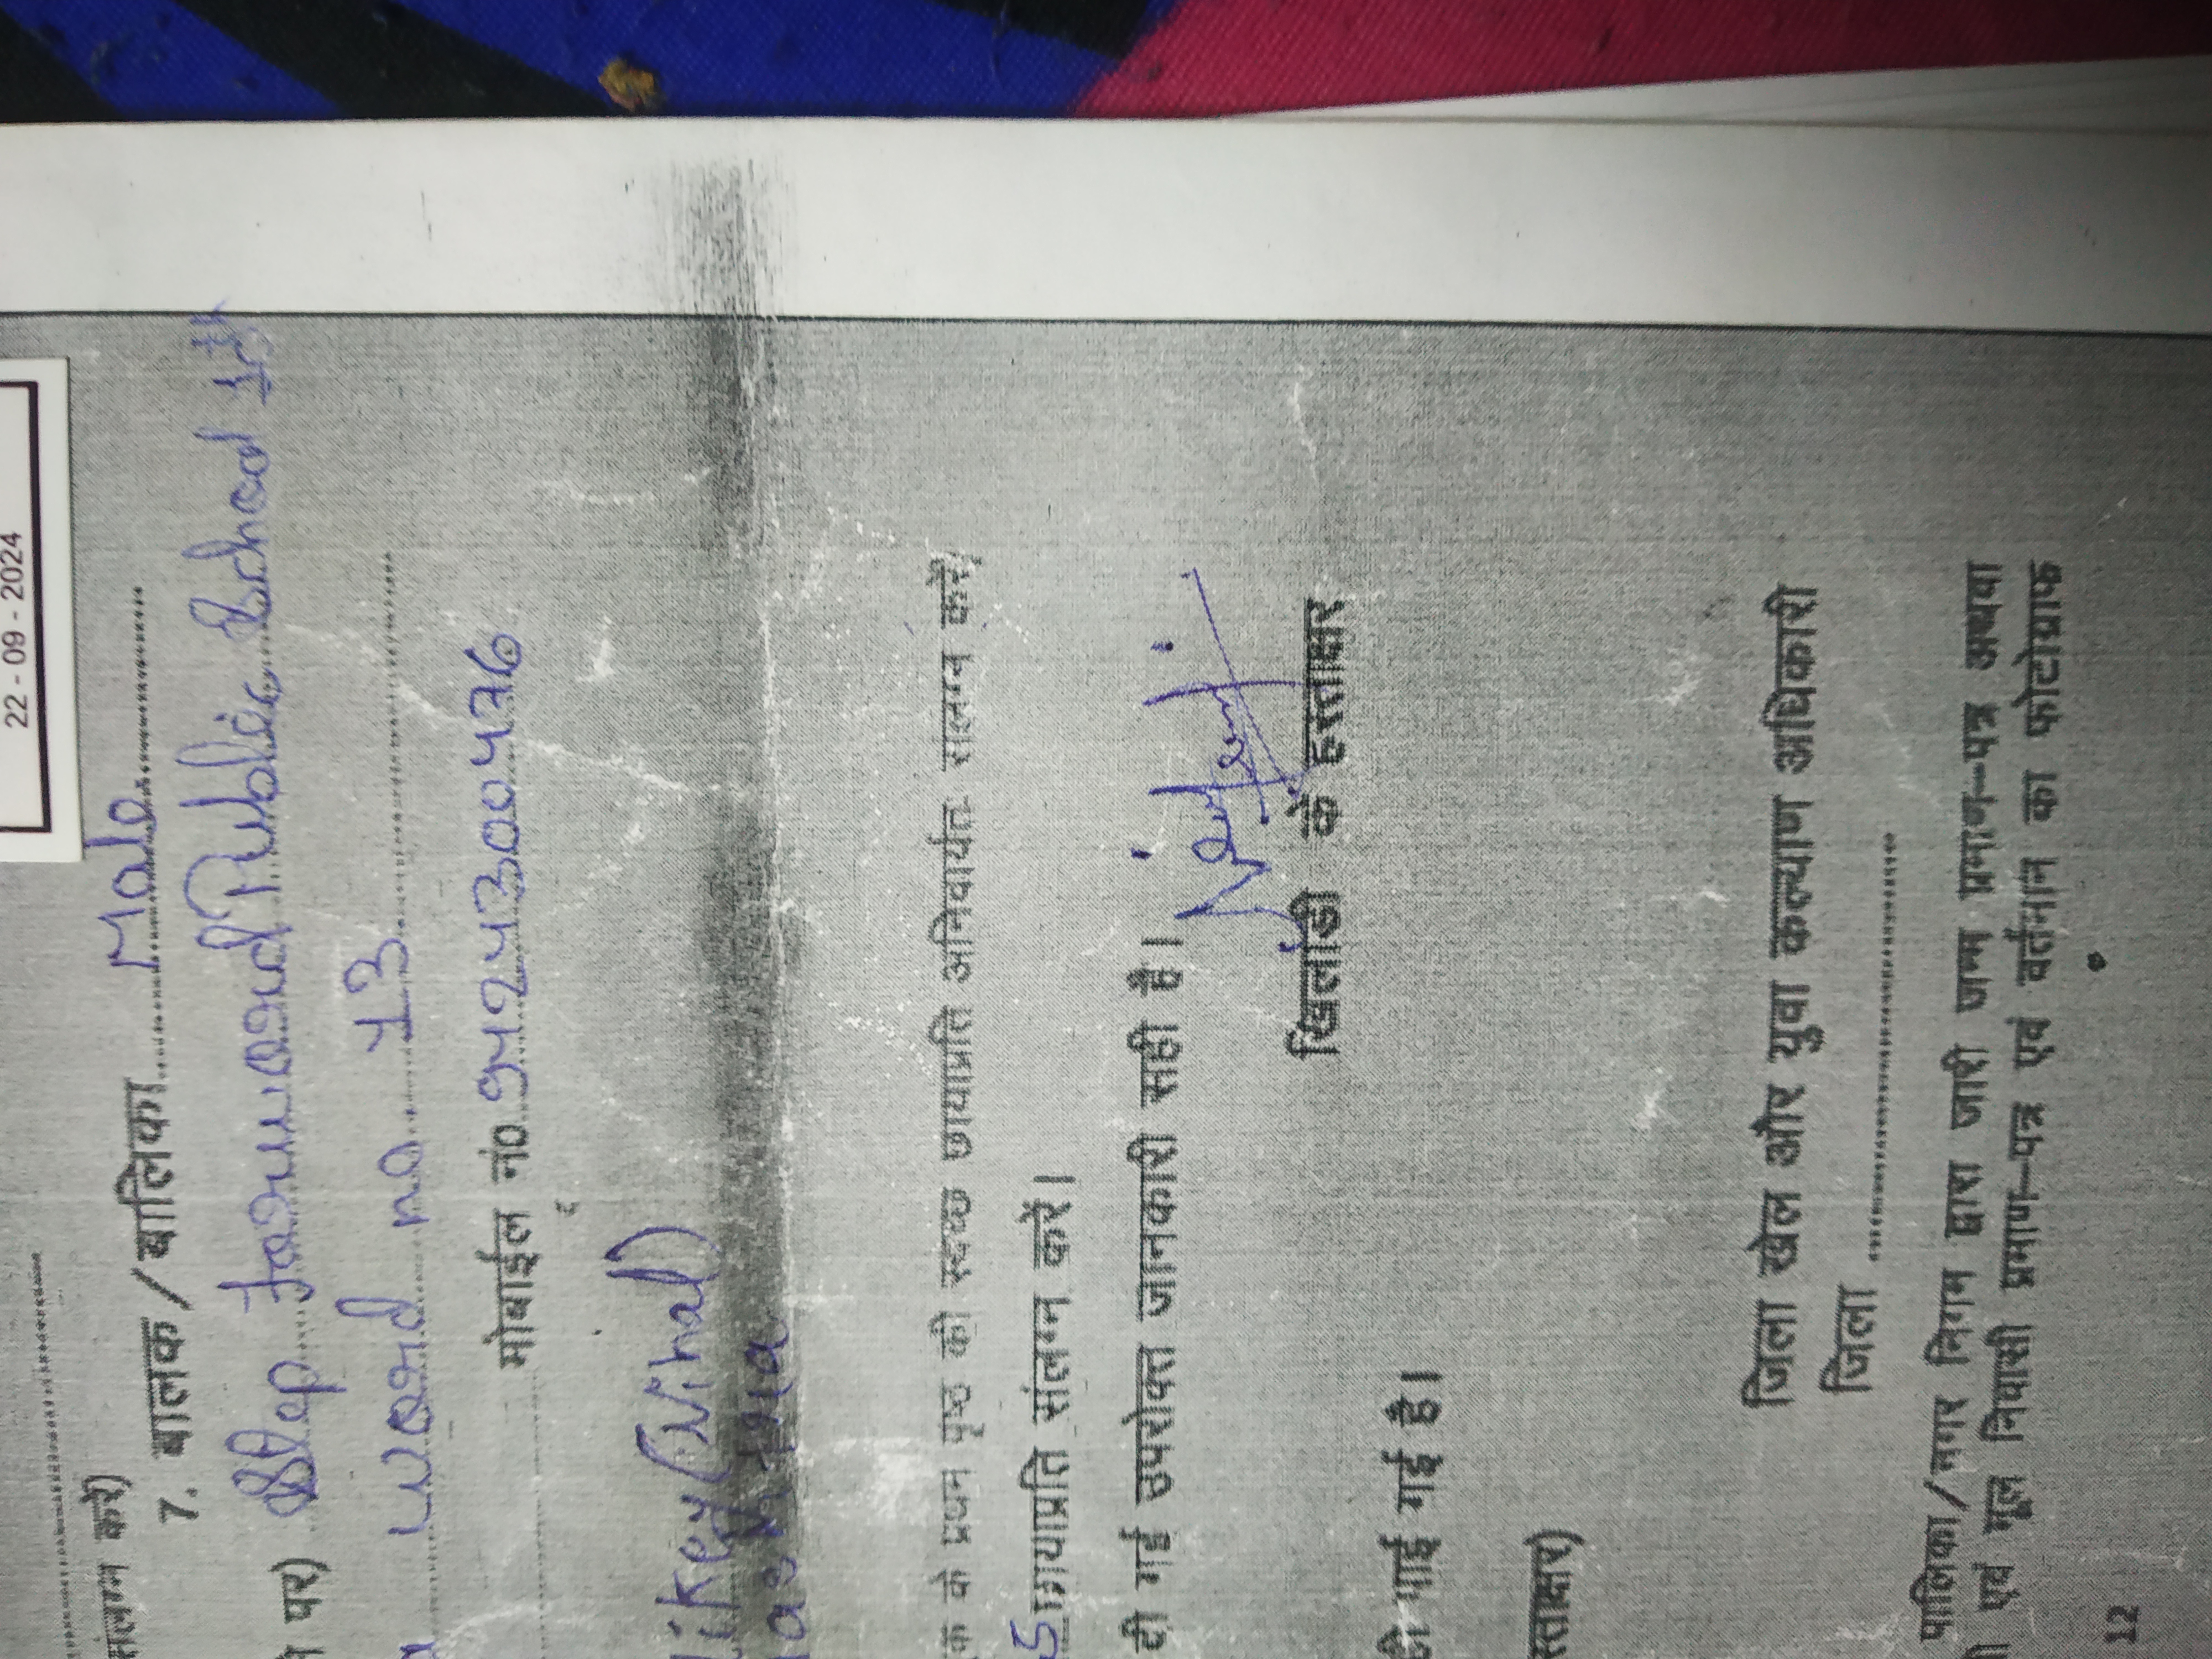 22 - 09 - 2024
संलग्न करें)
7. बालक / बालिका Male
पर) Step forward Public School 1st
ward no 13
मोबाईल नं0. 9424300476
(Nihal)
क के प्रथम पृष्ठ की स्वच्छ छायाप्रति अनिवार्यतः संलग्न करें,
5 छायाप्रति संलग्न करें।
दी गई उपरोक्त जानकारी सही है।
खिलाडी के हस्ताक्षर
पाई गई है।
स्ताक्षर)
जिला खेल और युवा कल्याण अधिकारी
जिला
पालिका/नगर निगम द्वारा जारी जन्म प्रमाण-पत्र अथवा
एवं मूल निवासी प्रमाण-पत्र एवं वर्तमान का फोटोग्राफ
12